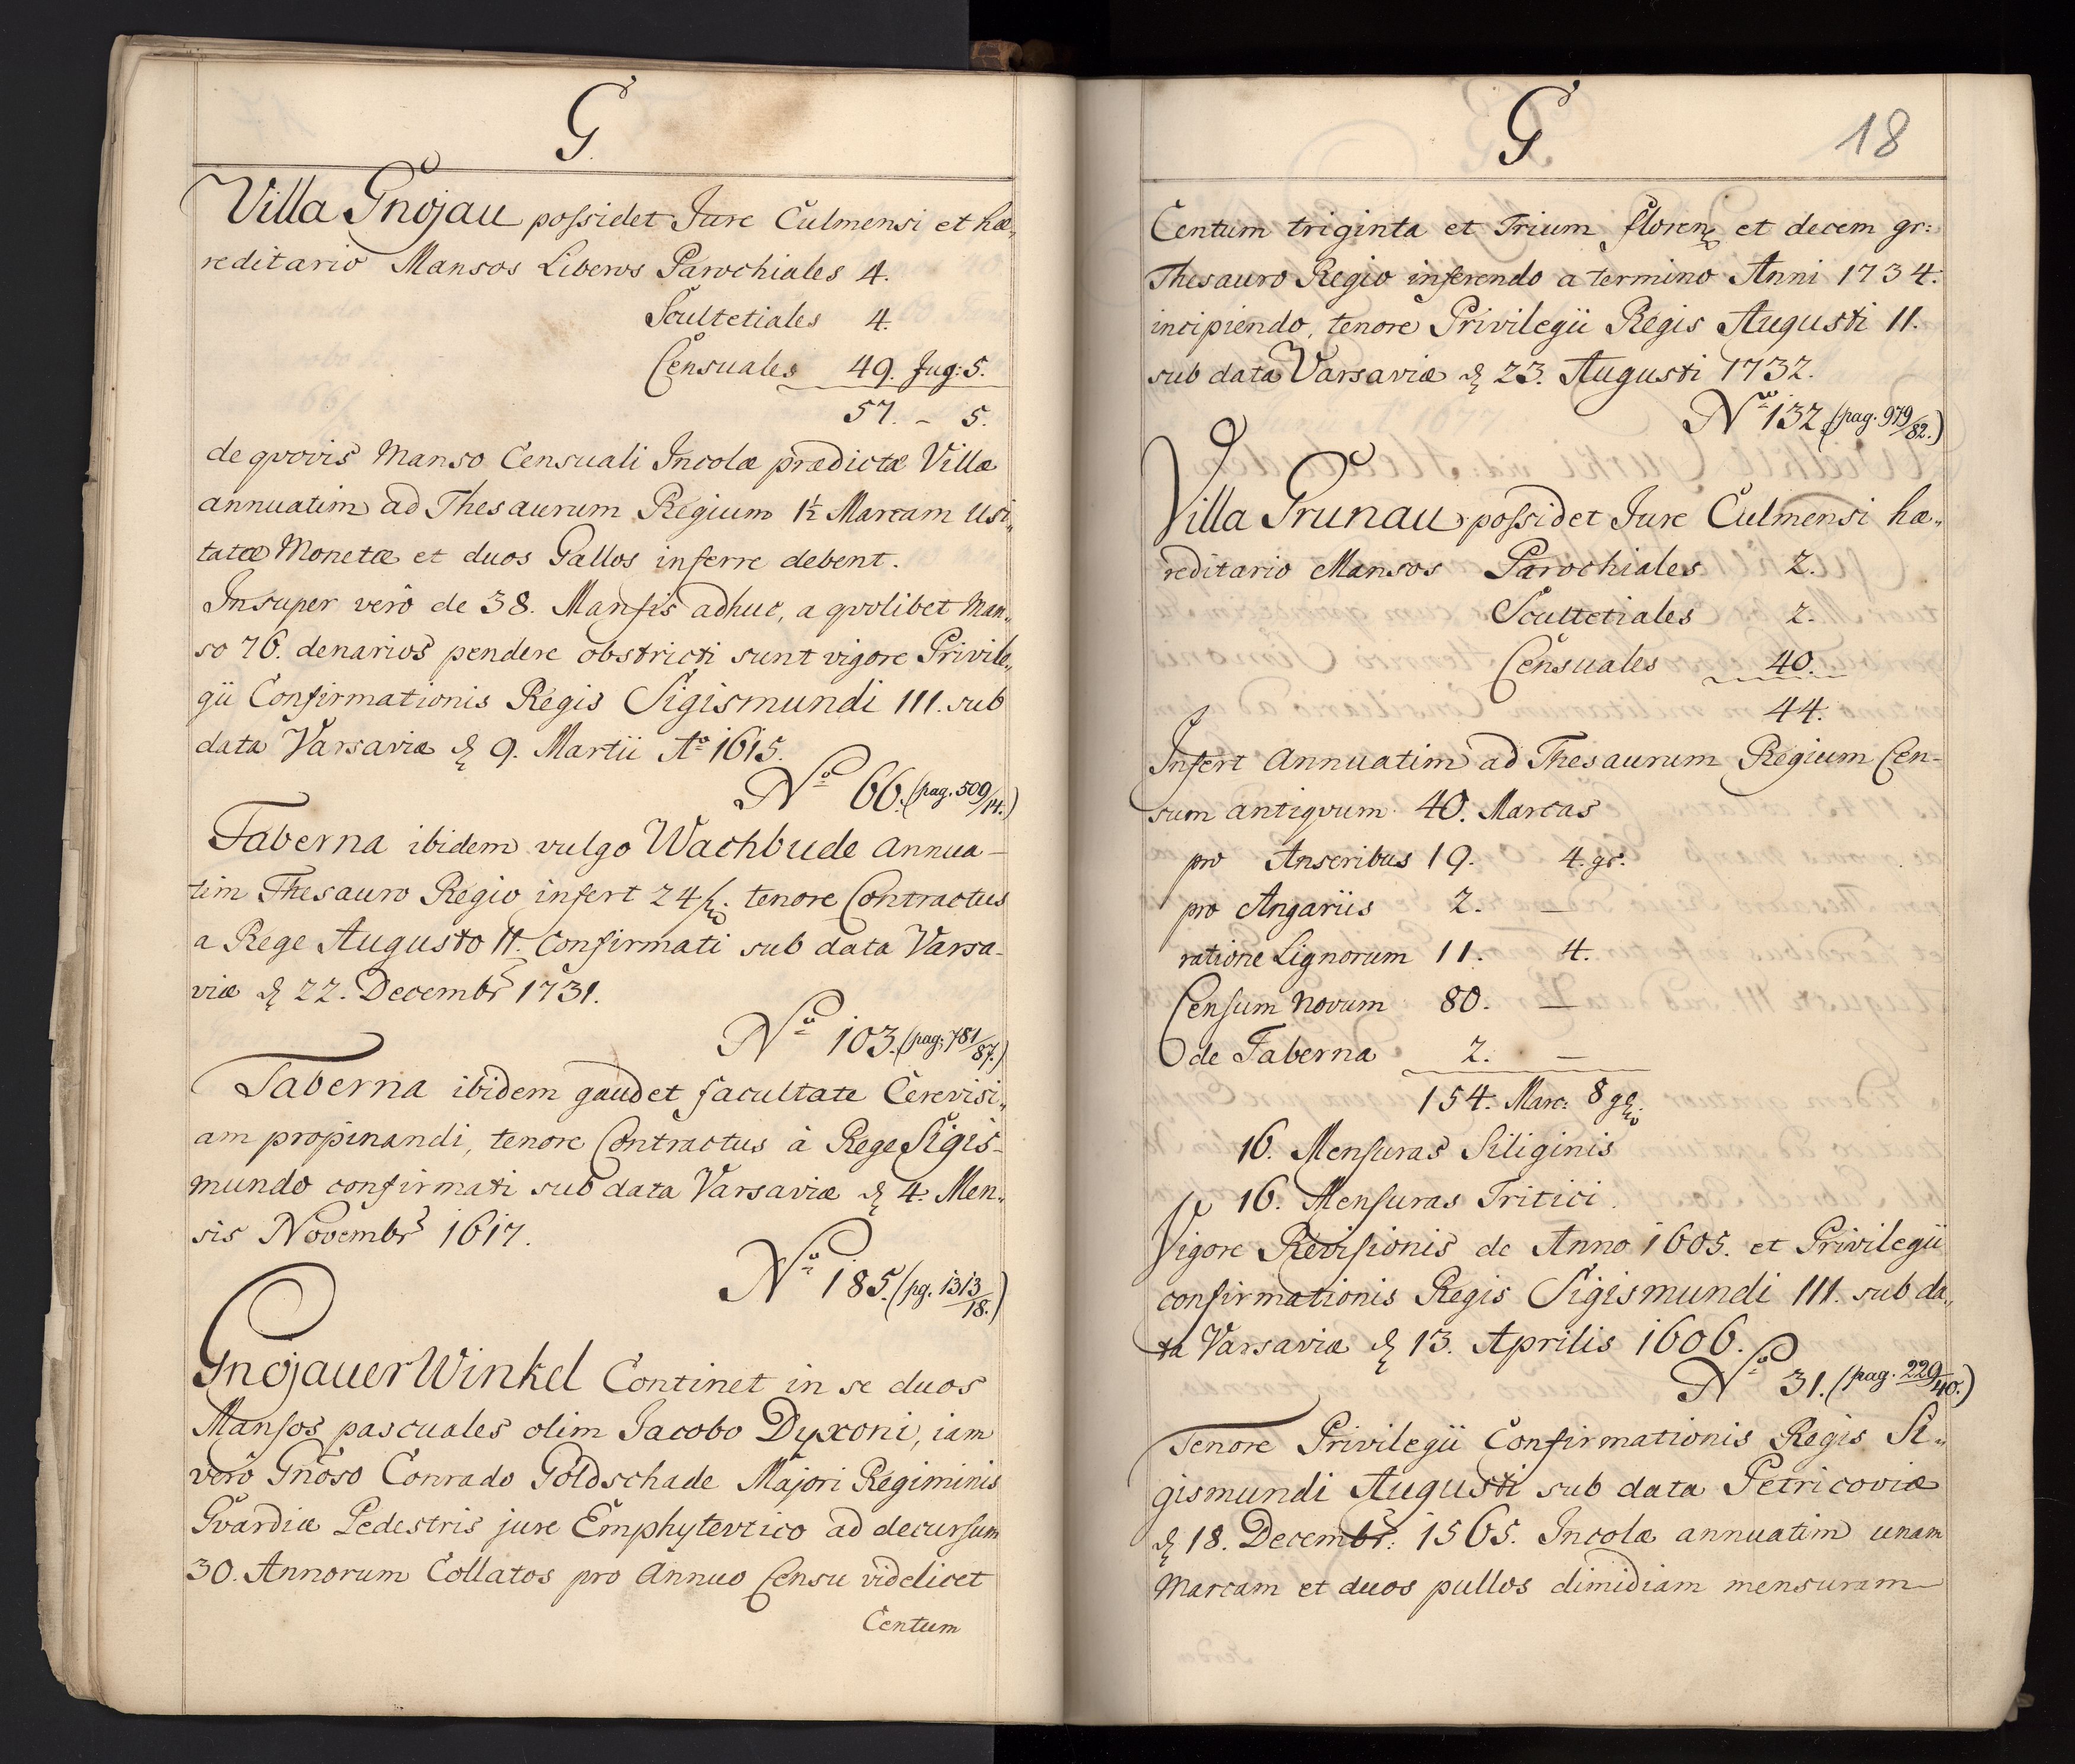 G.
Villa Gnojau possidet Jure Culmensi et hæ„
reditario Mansos Liberos Parochiales 4.
Scultetiales 4.
Censuales 49. Jug: 5.
57. – 5.
de qvovis Manso Censuali Incolæ prædictæ Villæ
annuatim ad Thesaurum Regium 1½ Marcam Usi„
tatæ Monetæ et duos Gallos inferre debent.
Insuper verò de 38. Mansis adhuc, a qvolibet Man„
so 76. denarios pendere obstricti sunt vigore Privile„
gii Confirmationis Regis Sigismundi III. sub
data Varsaviæ d. 9. Martii Aº 1615.
Nº 66. (pag. 509/14.)
Taberna ibidem vulgo Wachbude annua-
tim Thesauro Regio infert 24 fl. tenore Contractus
a Rege Augusto II. Confirmati sub data Varsa-
viæ d. 22. Decembr 1731.
Nº 103. (pag: 781/87.)
Taberna ibidem gaudet facultate Cerevisi„
am propinandi, tenore Contractus à Rege Sigis-
mundo confirmati sub data Varsaviæ d. 4. Men„
sis Novembr 1617.
Nº 185. (pg. 1313/18.)
Gnojauer Winkel Continet in se duos
Mansos pascuales olim Jacobo Dyxoni, iam
verò Gnoso Conrado Goldschade Majori Regiminis
Gvardiæ Pedestris jure Emphytevtico ad decursum
30. Annorum Collatos pro Annuo Censu videlicet
Centum
G
18
Centum triginta et Trium floren et decem gr:
Thesauro Regio inferendo a termino Anni 1734.
incipiendo, tenore Privilegii Regis Augusti II.
sub data Varsaviæ d. 23. Augusti 1732.
Nº 132 (pag. 979/82.)
Villa Grunau possidet Jure Culmensi hæ„
reditario Mansos Parochiales 2.
Scultetiales 2.
Censuales 40.
44.
Infert Annuatim ad Thesaurum Regium Cen-
sum antiqvum 40. Marcas
pro Anseribus 19. 4. gr.
pro Angariis 2. —
ratione Lignorum 11. 4.
Censum novum 80. —
de Taberna 2. —
154. Marc: 8 gr.
16. Mensuras Siliginis
16. Mensuras Tritici.
Vigore Revisionis de Anno 1605. et Privilegii
confirmationis Regis Sigismundi III. sub da„
ta Varsaviæ d. 13. Aprilis 1606.
Nº 31. (pag. 229/40.)
Tenore Privilegii Confirmationis Regis Si„
gismundi Augusti sub data Petricoviæ
d. 18. Decembr: 1565. Incolæ annuatim unam
Marcam et duos pullos dimidiam mensuram